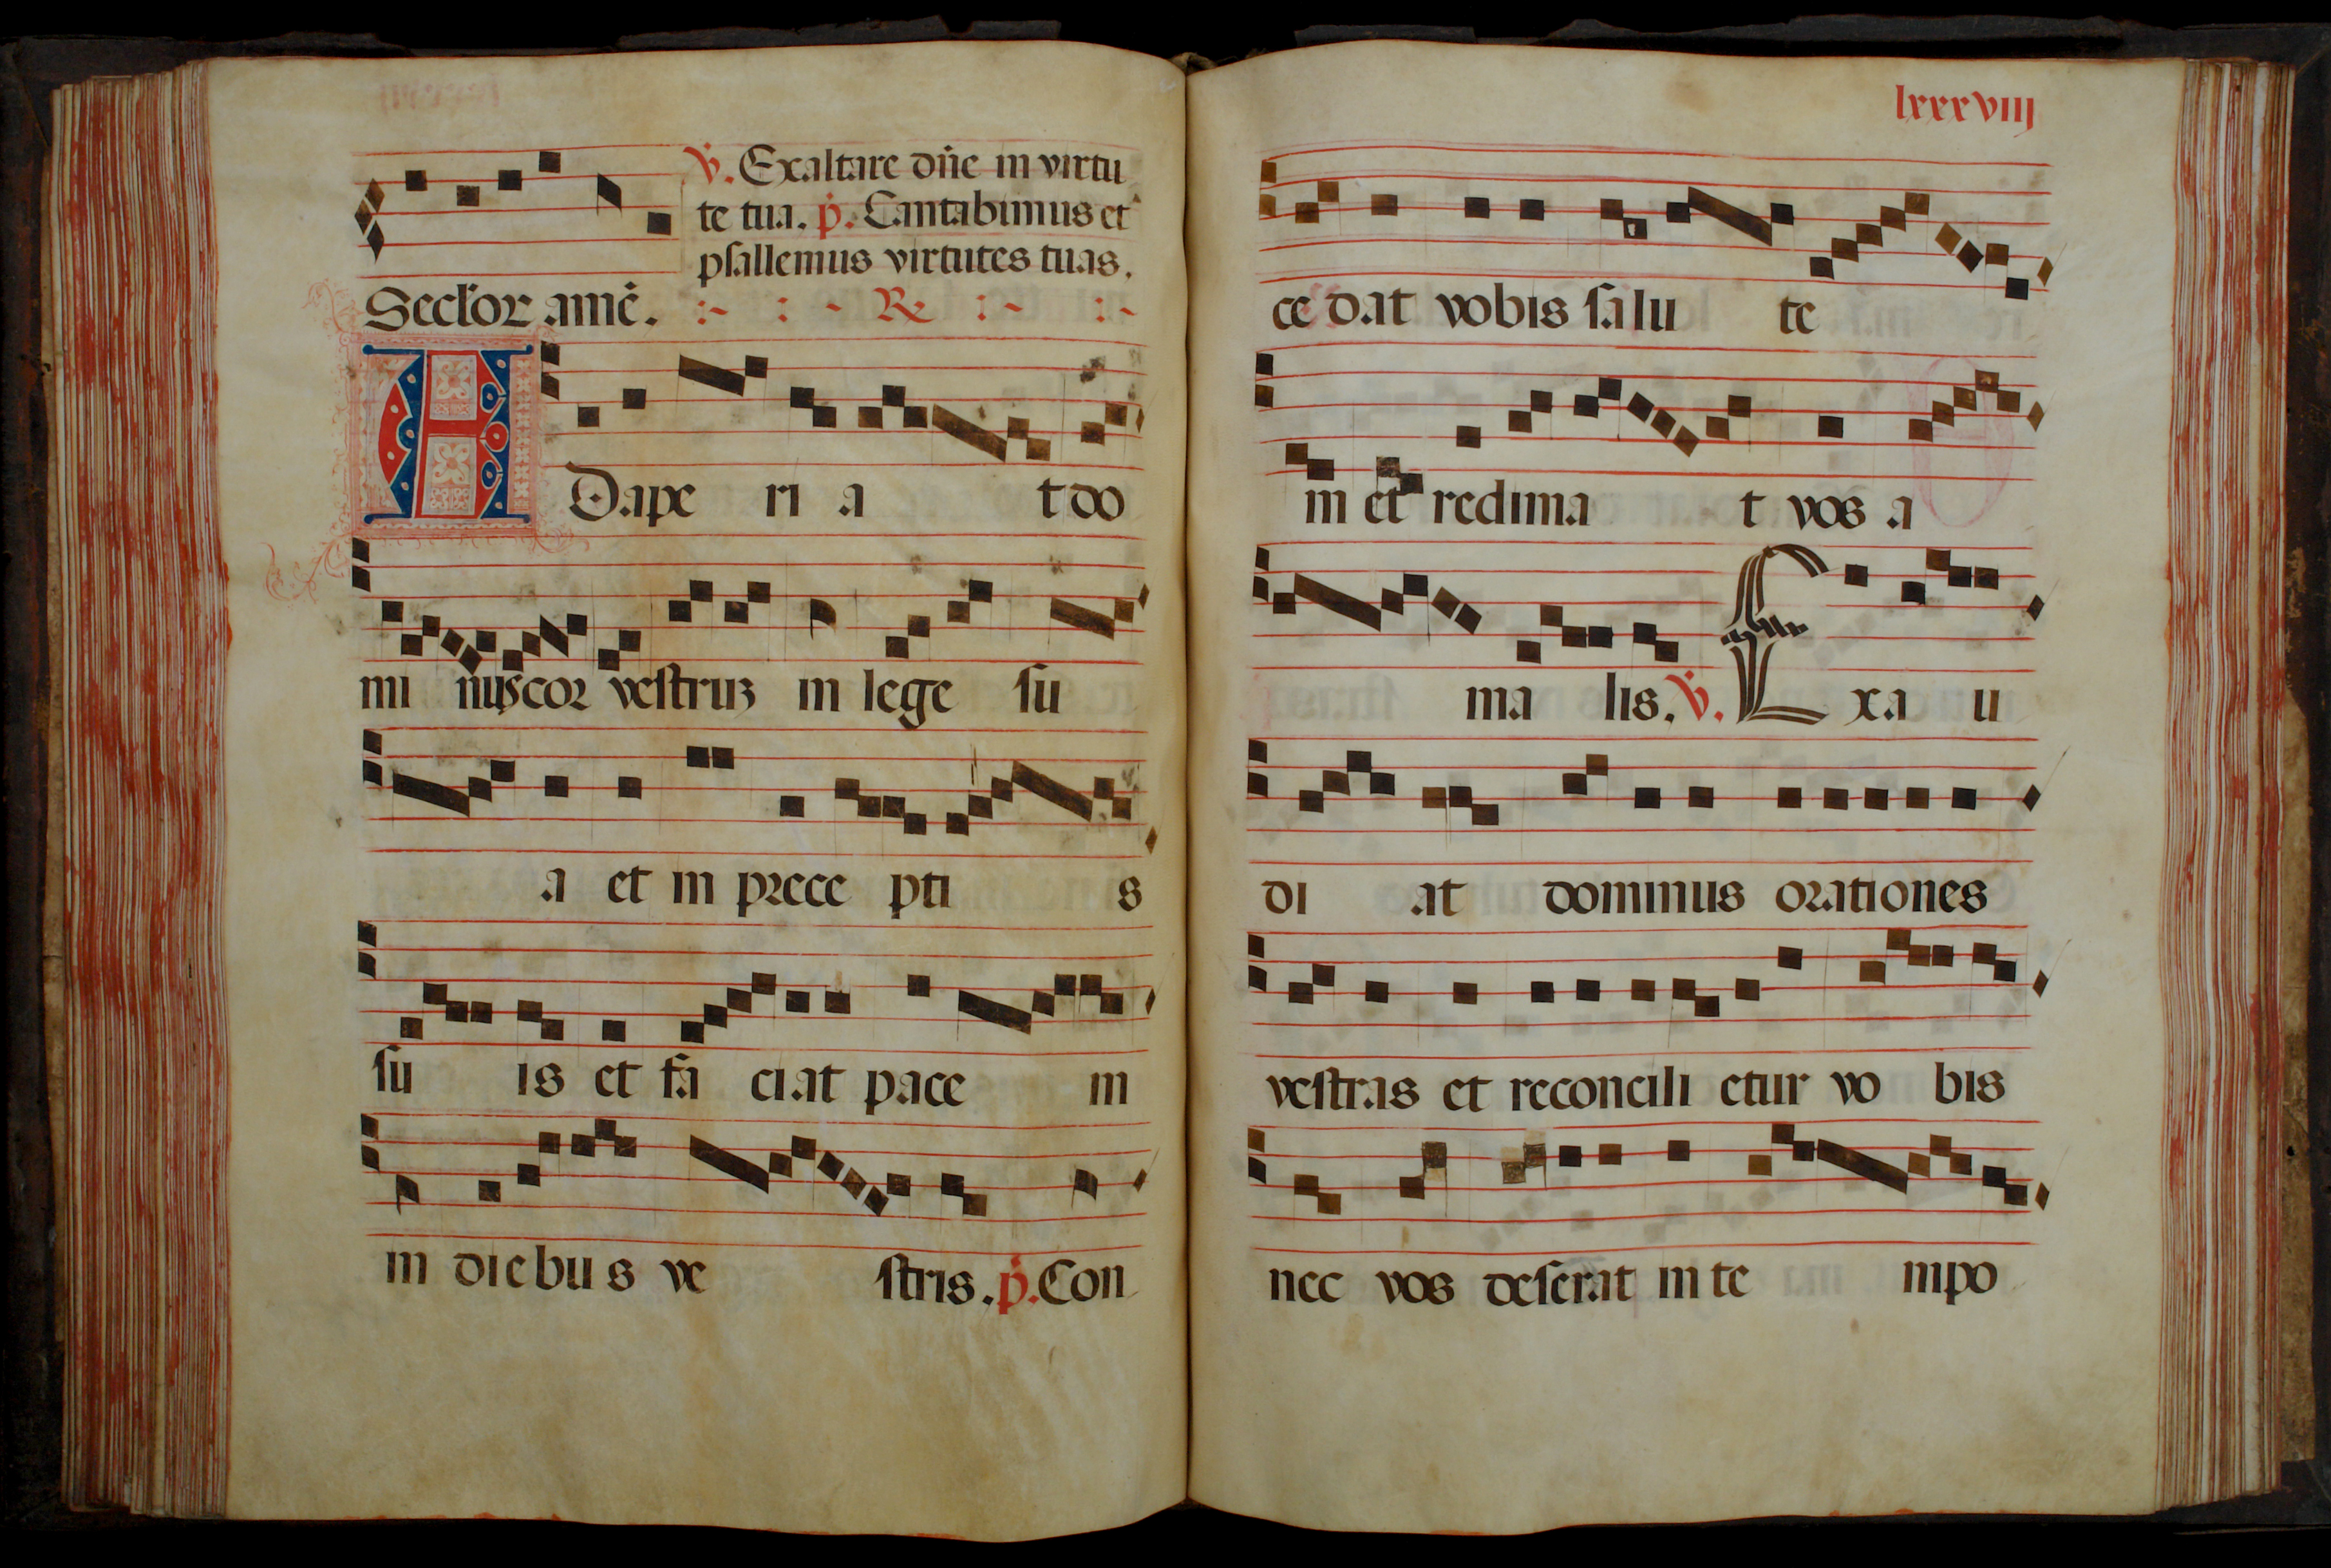 v. Exaltare dñe in virtu
te tua. p. Cantabimus et
psallemus virtutes tuas.
Secl'or amē. R
ADape ri a t do
mi nus cor vestruʒ in lege su
a et in prece pti s
su is et fa ciat pace in
in diebus ve stris. p. Con
lxxxviij
ce dat vobis salu te
in et redima t vos a
ma lis. v. Exa u
di at dominus orationes
vestras et reconcili etur vo bis
nec vos deserat in te mpo